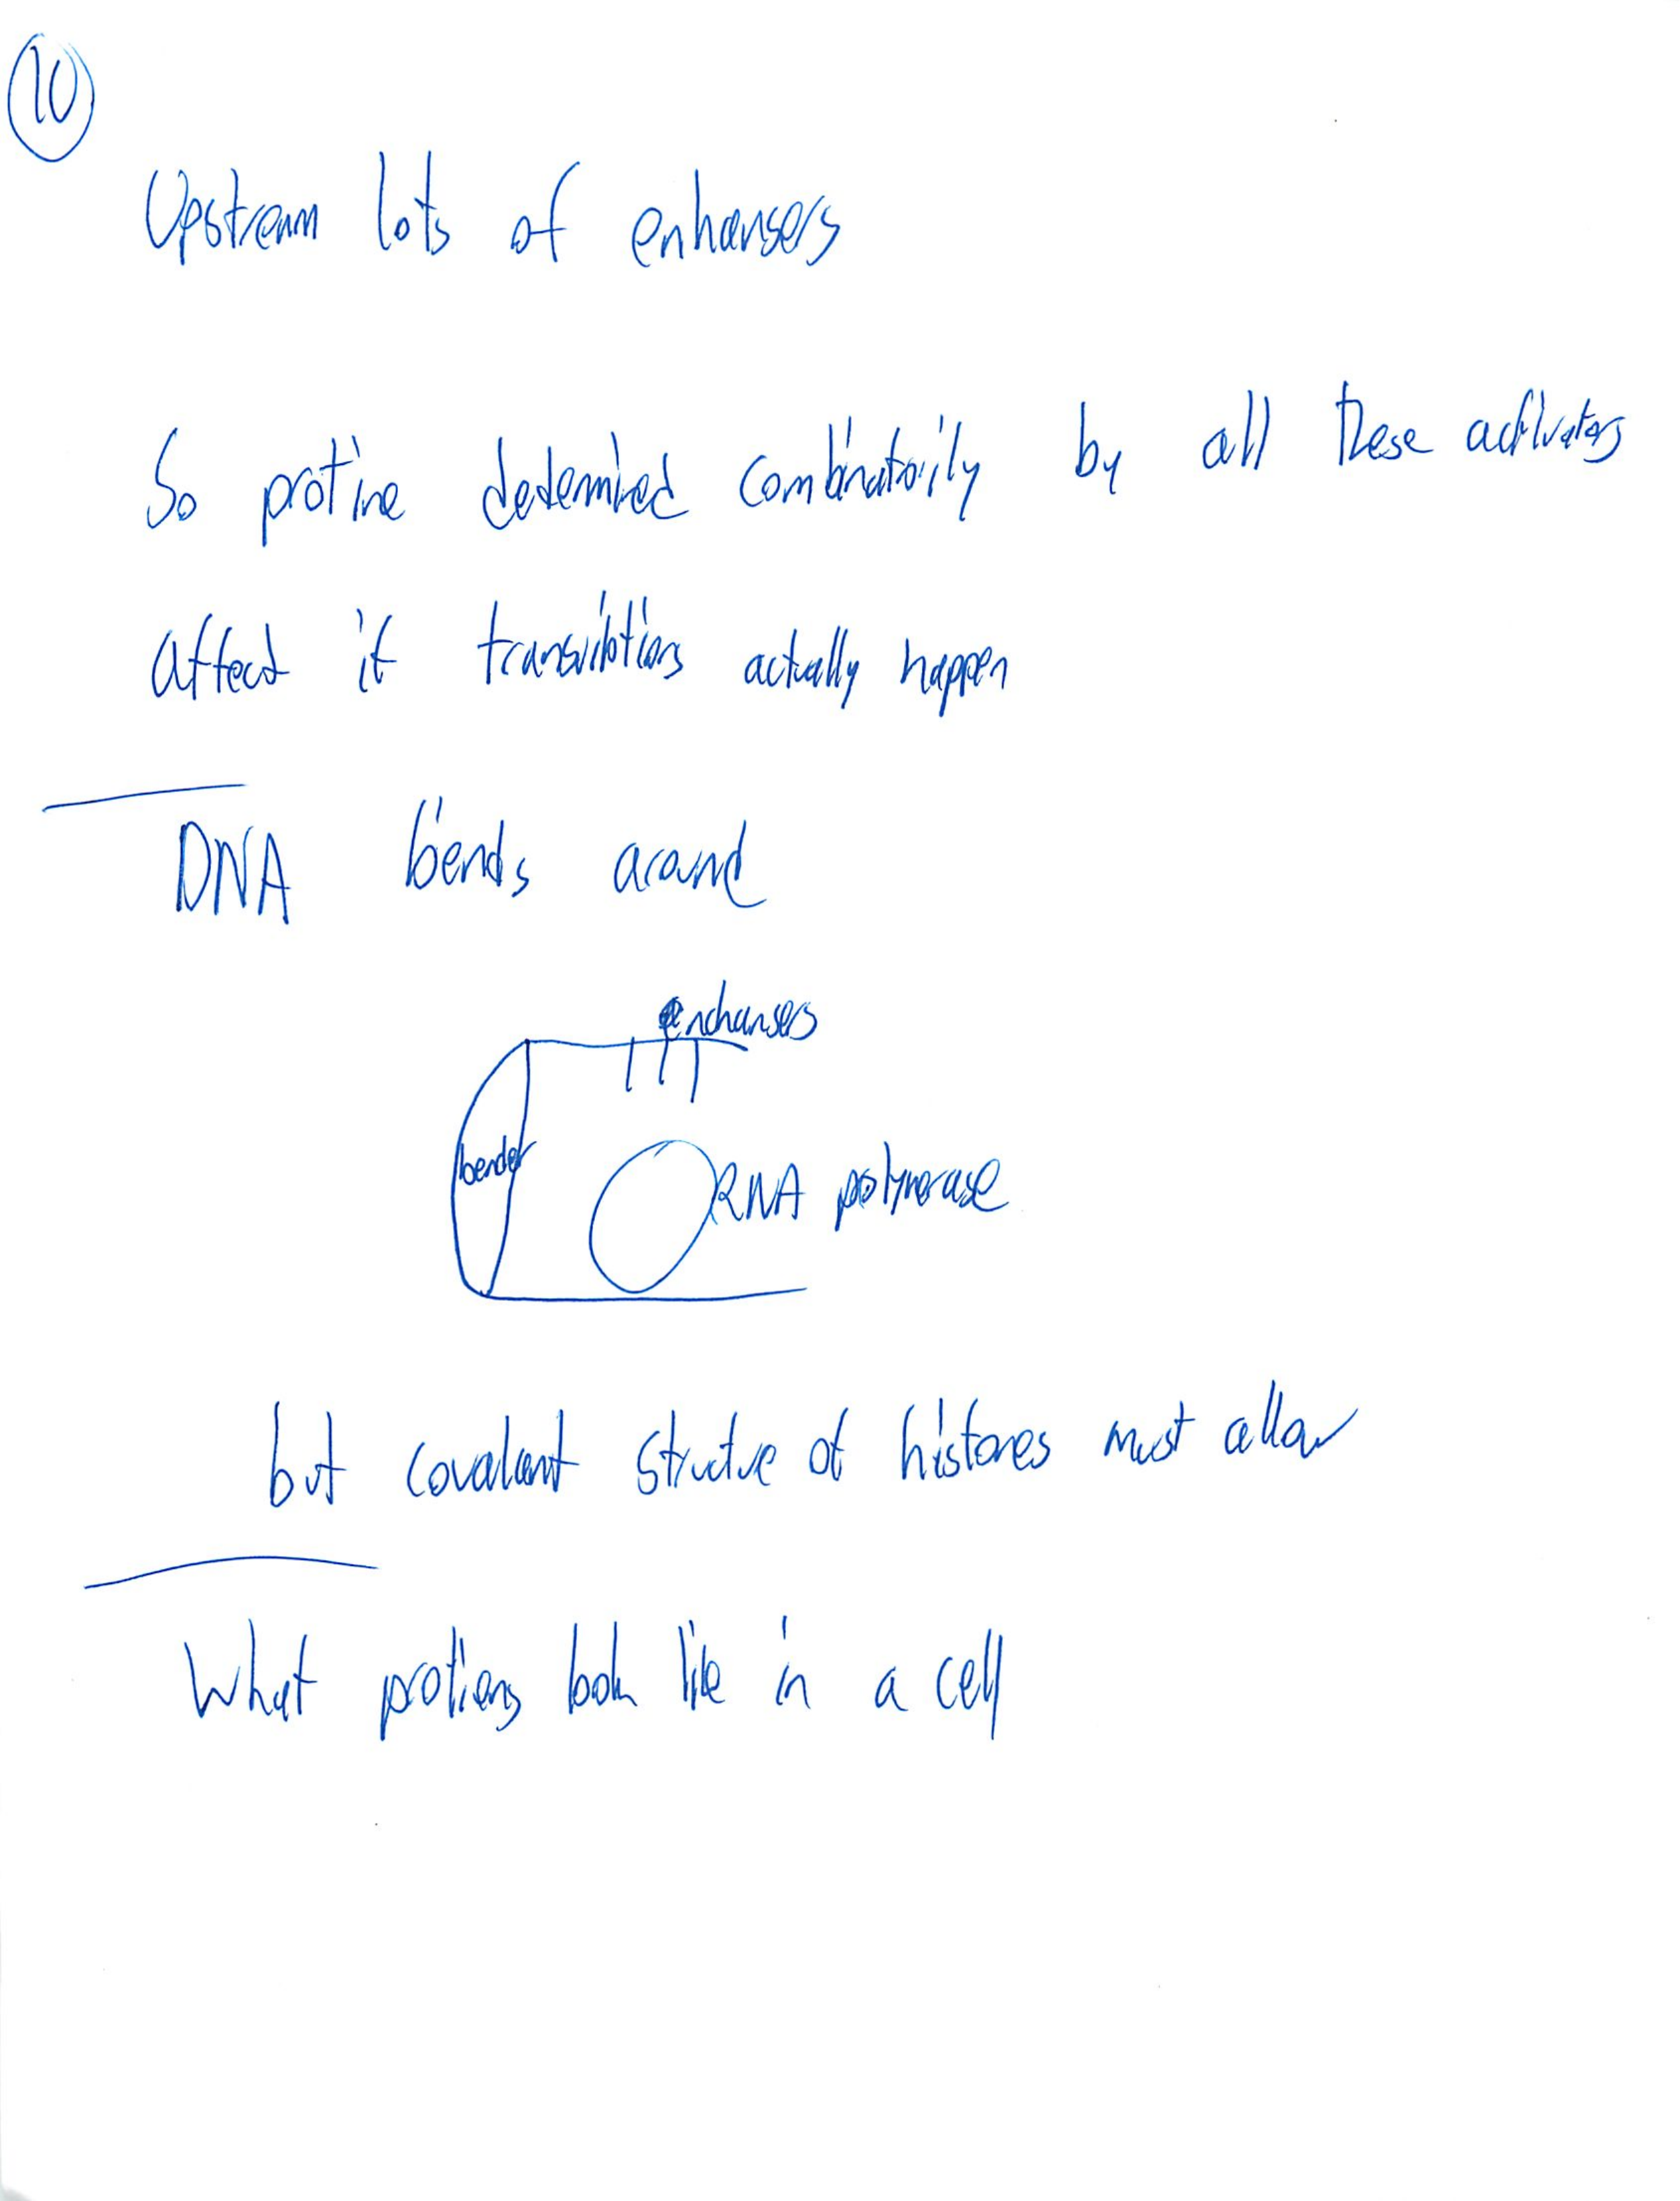 10
Upstream lots of enhansers
So protine determined combinatorily by all these activators
affect if transcibtions actually happen
DNA bends around
enchansers
bender
RNA polymerase
but covalent structve of histones must allow
What protiens look like in a cell